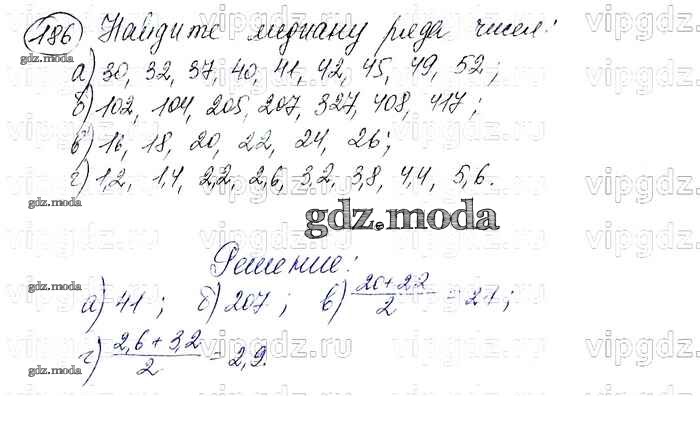 186 Найдите медиану ряда чисел:
gdz.moda
а) 30, 32, 37, 40, 41, 42, 45, 49, 52;
vipgdz.ru
б) 102, 104, 205, 207, 327, 408, 417;
в) 16, 18, 20, 22, 24, 26;
г) 1,2, 1,4, 2,2, 2,6, 3,2, 3,8, 4,4, 5,6.
gdz.moda
gdz.moda
Решение:
а) 41; б) 207; в) 20+22/2 = 21;
gdz.moda
г) 2,6+3,2/2 = 2,9.
gdz.moda